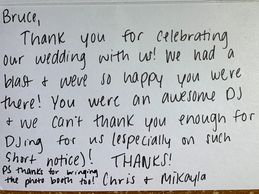 Bruce,
Thank you for celebrating
our wedding with us! We had a
blast & were so happy you were
there! You were an awesome DJ
& we can't thank you enough for
DJing for us (especially on such
short notice)! THANKS!
PS thanks for bringing
the photo booth too! Chris & Mikayla